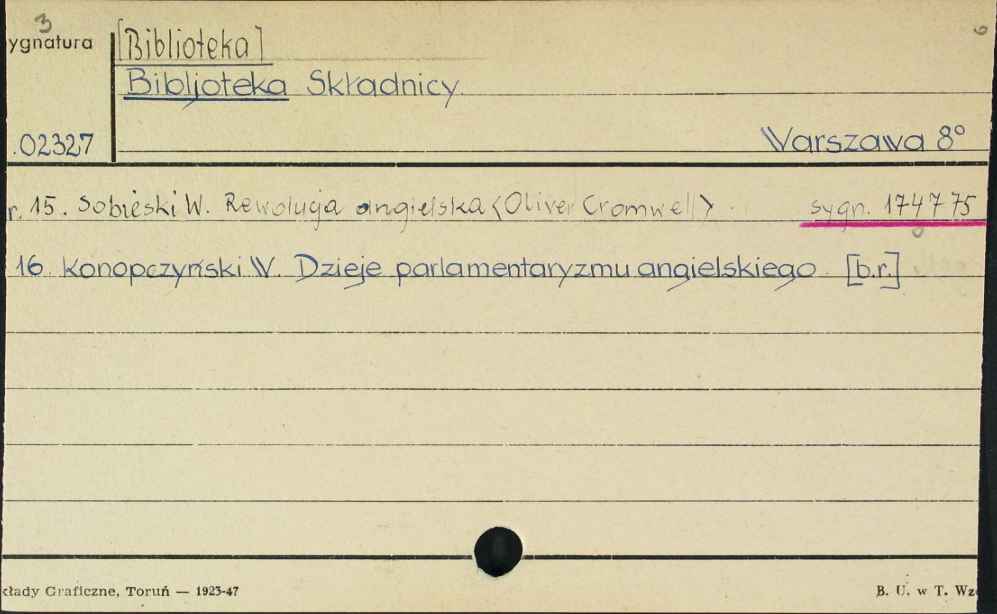 3
ygnatura [Biblioteka] 6
Bibljoteka Składnicy.
.02327 Warszawa 8°
r. 15. Sobieski W. Rewolucja angielska <Oliver Cromwell>. sygn. 174775
16. Konopczyński W. Dzieje parlamentaryzmu angielskiego. [b.r.]
kłady Graficzne, Toruń — 1923-47 B. U. w T. Wzó